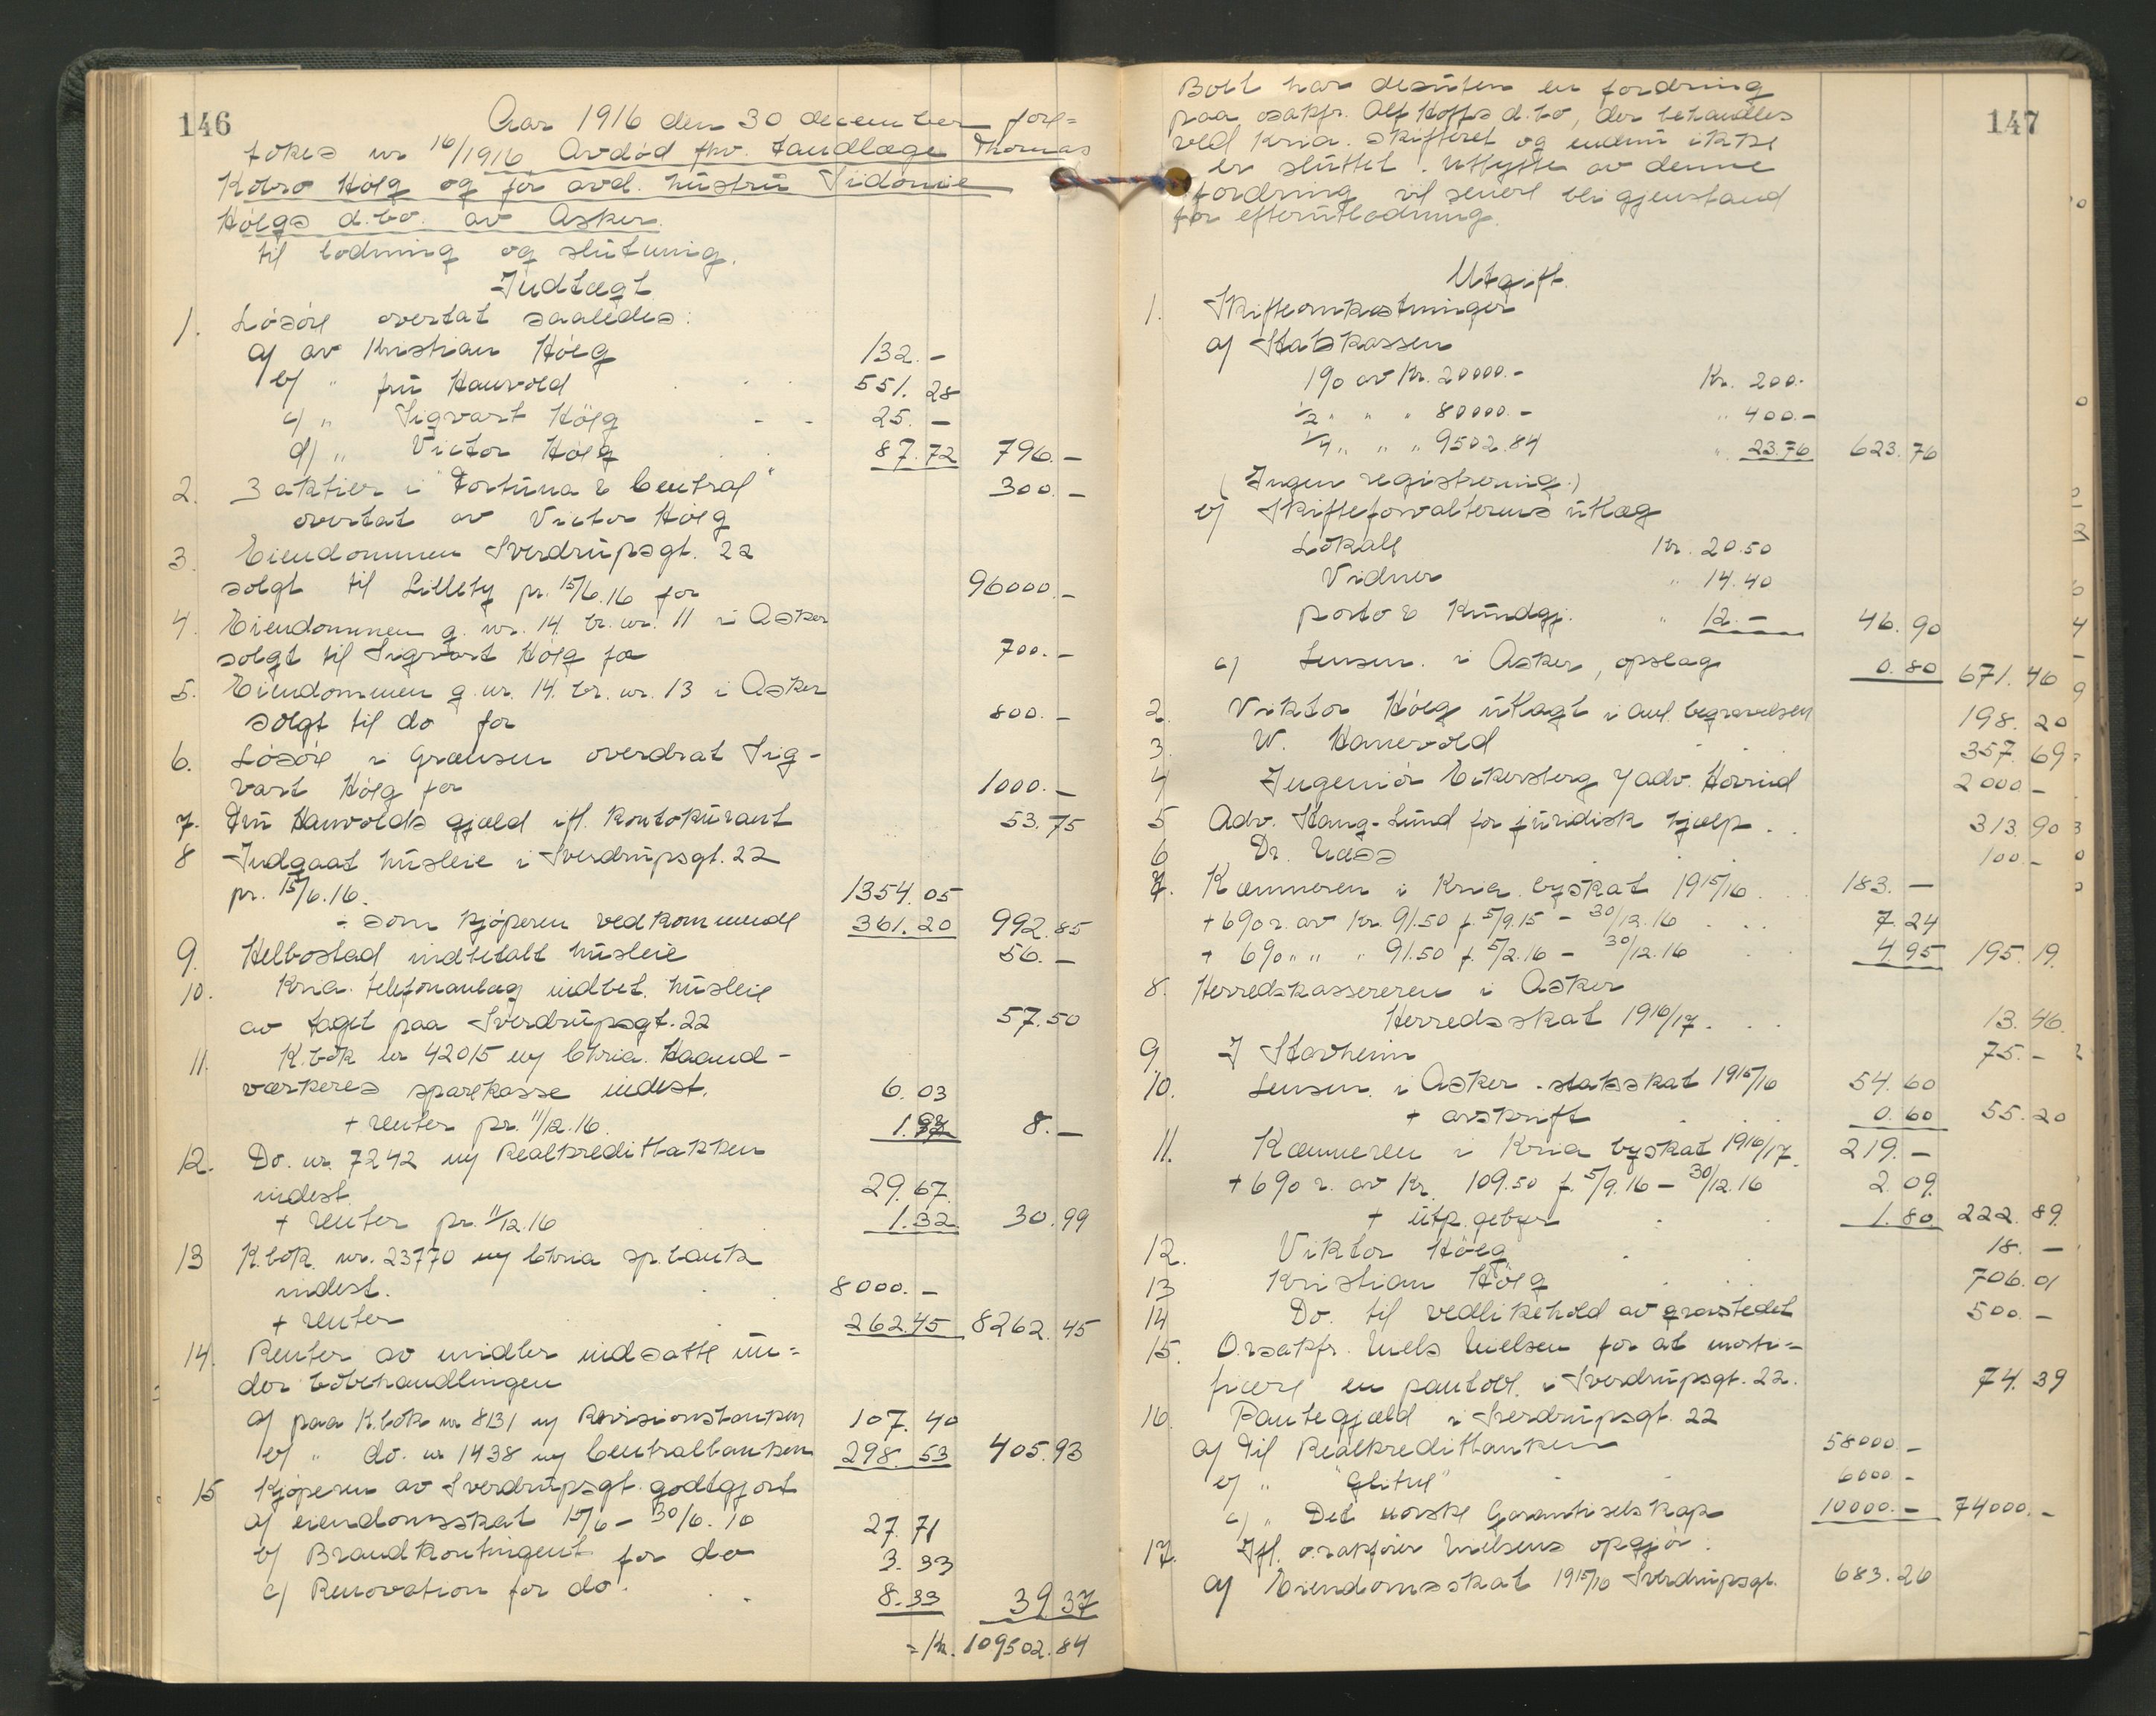 146
Aar 1916 den 30 december fore=
tokes nr 16/1916 Avdød fhv. Tandlæge Thomas
Kobro Høeg og før avd. hustru Sidonie
Høegs d.bo. av Asker.
til lodning og slutning.
Indtægt
1. Løsøre overtat saaledes:
a) av Kristian Høeg 132.-
b) " fru Hauvold 551.28
c) " Sigvart Høeg 25.-
d) " Victor Høeg 87.72 796.-
2. 3 aktier i "Fortuna & Central" 300.-
overtat av Victor Høeg
3. Eiendommen Sverdrupsgt. 22
solgt til Lilleby pr. 15/6.16 for 96000.-
4. Eiendommen g.nr. 14 br.nr. 11 i Asker
solgt til Sigvart Høeg for 700.-
5. Eiendommen g.nr. 14. br.nr. 13 i Asker
solgt til do for 800.-
6. Løsøre i Grænsen overdrat Sig-
vart Høeg for 1000.-
7. Fru Hauvolds gjæld ifl. kontokurant 53.75
8 Indgaat husleie i Sverdrupsgt. 22
pr. 15/6.16. 1354.05
- som kjøperen vedkommende 361.20 992.85
9. Helbostad indbetalt husleie 56.-
10. Kria. telefonanlæg indbet. husleie
av taget paa Sverdrupsgt. 22 57.50
11. K.bok nr 42015 m/ Chria. Haand-
verkeres sparekasse indest. 6.03
+ renter pr. 11/12.16. 1.97 8.-
12. Do. nr. 7242 m/ Realkreditbakken
indest. 29.67.
+ renter pr. 11/12.16 1.32. 30.99
13 K.bok. nr. 23770 m/ Chria sp.bank
indest. 8000.-
+ renter 262.45 8262.45
14. Renter av midler indsatte un=
der bobehandlingen
a) paa K.bok nr 8131 m/ Revisionsbanken 107.40
b) " do. nr 1438 m/ Centralbanken 298.53 405.93
15 Kjøperen av Sverdrupsgt. godtgjort
a) eiendomsskat 15/6 - 30/6.16 27.71
b) Brandkontingent for do 3.33
c) Renovation for do. 8.33 39.37
= Kr. 109502.84
147
Boet har desuten en fordring
paa osakfr. Alf Hoffs d.bo, der behandles
ved Kria. skifteret og endnu ikke
er sluttet. Utbytte av denne
fordring vil senere bli gjenstand
for efterutlodning.
Utgift.
1. Skifteomkostninger
a) Statskassen
1% av Kr. 20000.- Kr. 200.-
1/2 " " " 80000.- " 400.-
1/4 " " " 9502.84 " 23.76 623.76
(Ingen registrering.)
b) Skifteforvalterens utlæg
Lokale Kr. 20.50
Vidner " 14.40
porto & kundgj. " 12.- 46.90
c) Lensm. i Asker, opslag 0.80 671.46
2. Viktor Høeg utlagt i anl. begravelsen 198.20
3. W. Hauevold 357.69
4 Ingeniør Eckersberg v/ adv. Horrind 2000.-
5 Adv. Stang-Lund for juridisk hjælp. 313.90
6 Dr. Næss 100.-
7. Kæmneren i Kria. byskat 1915/16 183.-
+ 6% r. av Kr. 91.50 f. 5/9.15 - 30/12.16 7.24
+ 6% " " " 91.50 f. 5/2.16 - 30/12.16 4.95 195.19.
8. Herredskassereren i Asker
Herredsskat 1916/17. 13.46.
9. J Stavheim 75.-
10. Lensm. i Asker - statsskat 1915/16 54.60
+ avskrift 0.60 55.20
11. Kæmneren i Kria byskat 1916/17. 219.-
+ 6% r. av Kr. 109.50 f. 5/9.16 - 30/12.16 2.09.
+ utp. gebyr 1.80 222.89
12. Viktor Høeg 18.-
13 Kristian Høeg 706.01
14 Do. til vedlikehold av gravstedet 500.-
15. O.rsakfr. Niels Nielsen for at morti=
ficere en pantobl. i Sverdrupsgt. 22. 74.39
16. Pantegjæld i Sverdrupsgt. 22
a) Til Realkreditbanken 58000.-
b) " "Glitne" 6000.-
c) " Det norske Garantiselskap 10000.- 74000.-
17. Ifl. o.rakfører Nielsens opgjør:
a) Eiendomsskat 1915/16 Sverdrupsgt. 683.26